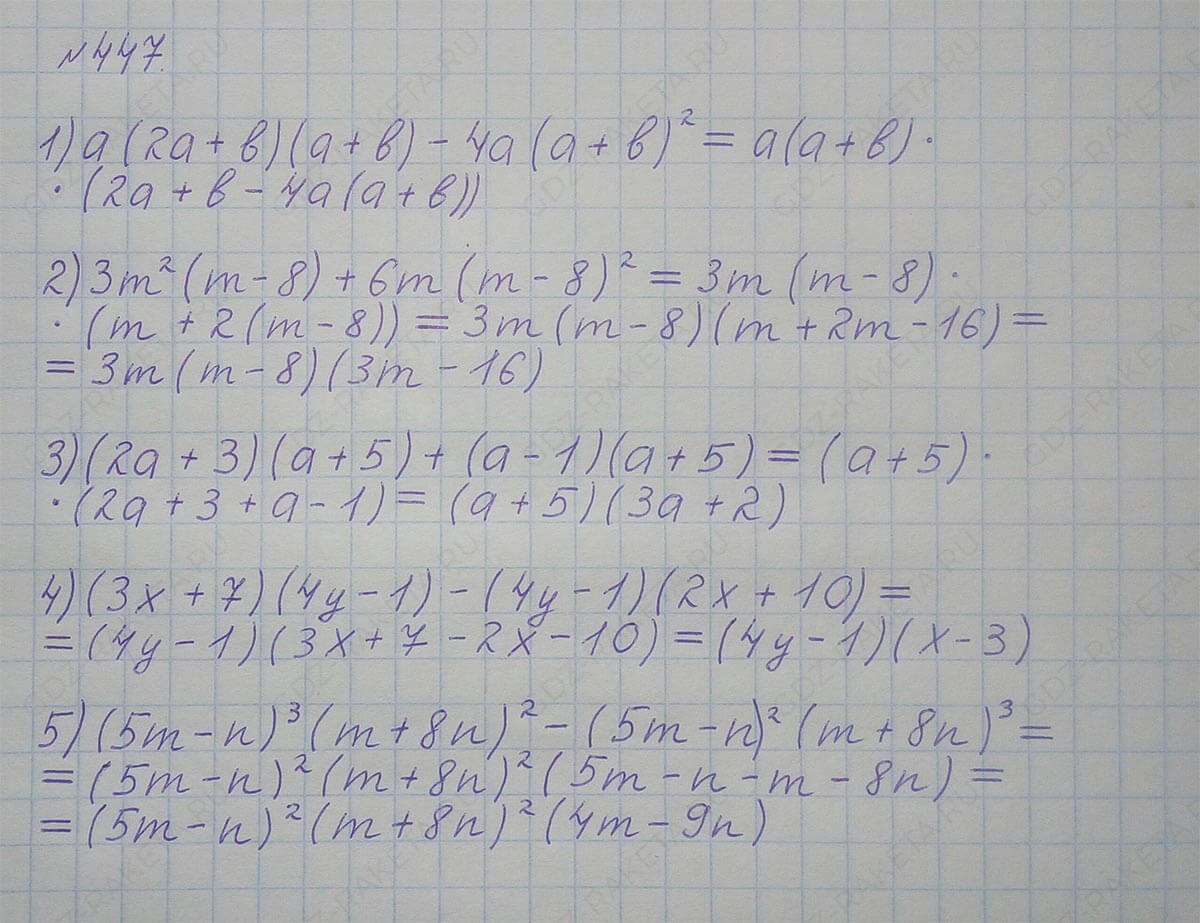 №447.
1) a(2a+b)(a+b)-4a(a+b)²=a(a+b)·
·(2a+b-4a(a+b))
2) 3m²(m-8)+6m(m-8)²=3m(m-8)·
·(m+2(m-8))=3m(m-8)(m+2m-16)=
=3m(m-8)(3m-16)
3) (2a+3)(a+5)+(a-1)(a+5)=(a+5)·
·(2a+3+a-1)=(a+5)(3a+2)
4) (3x+7)(4y-1)-(4y-1)(2x+10)=
=(4y-1)(3x+7-2x-10)=(4y-1)(x-3)
5) (5m-n)³(m+8n)²-(5m-n)²(m+8n)³=
=(5m-n)²(m+8n)²(5m-n-m-8n)=
=(5m-n)²(m+8n)²(4m-9n)
GDZ-RAKETA.RU